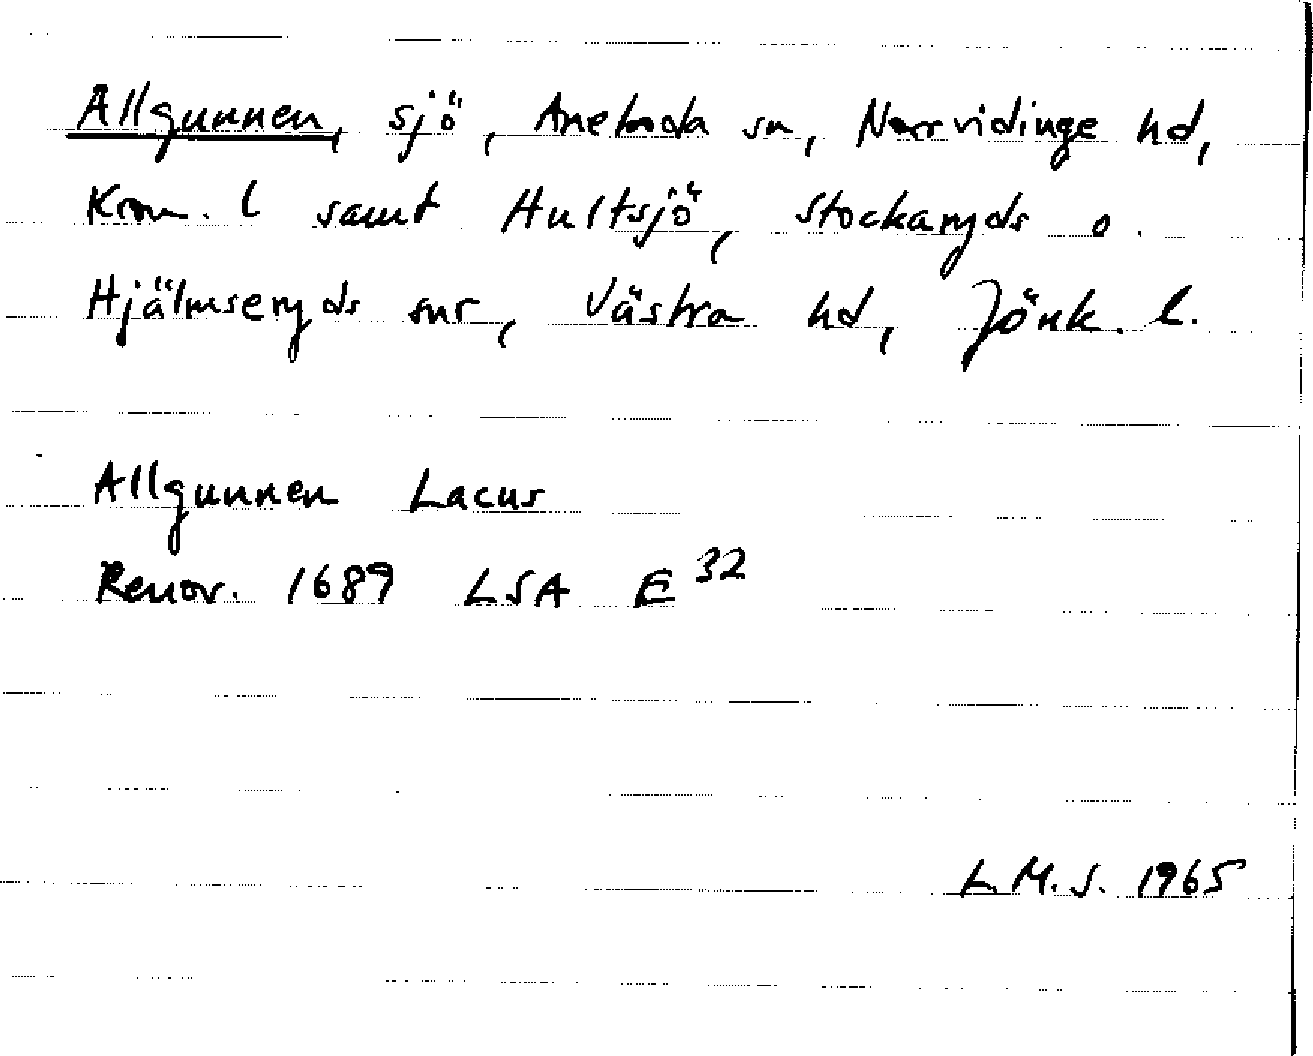 Allgunnen, sjö, Aneboda sn, Norrvidinge hd,
Kron. l samt Hultsjö, Stockaryds o.
Hjälmseryds snr, Västra hd, Jönk. l.
Allgunnen Lacus
Renov. 1689 LSA E 32
L.M.S. 1965